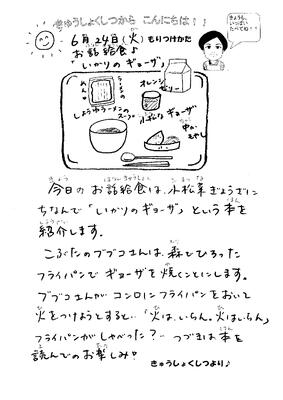 きゅうしょくしつから こんにちは!!
6月24日(火) もりつけかた
お話給食♪
「いかりのギョーザ」
きょうも、
いっぱい
たべてね!!
ラーメンの
めん
オレンジ
ゼリー
しょうゆラーメンの
スープ
小松なギョーザ
中か
もやし
今日の お話給食は、小松菜ぎょうざに
ちなんで「いかりのギョーザ」という本を
紹介します。
こぶたのブブコさんは、森でひろった
フライパンで ギョーザを焼くことにします。
ブブコさんが コンロにフライパンをおいて
火をつけようとすると…「火は、いらん。火はいらん」
フライパンがしゃべった?… つづきは 本を
読んでのお楽しみ♡
きゅうしょくしつより♪